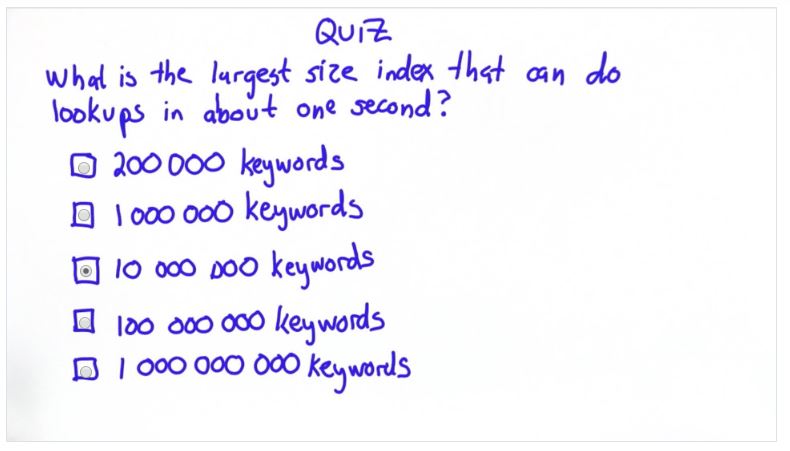 QUIZ
What is the largest size index that can do
lookups in about one second?
200 000 keywords
1 000 000 keywords
10 000 000 keywords
100 000 000 keywords
1 000 000 000 keywords